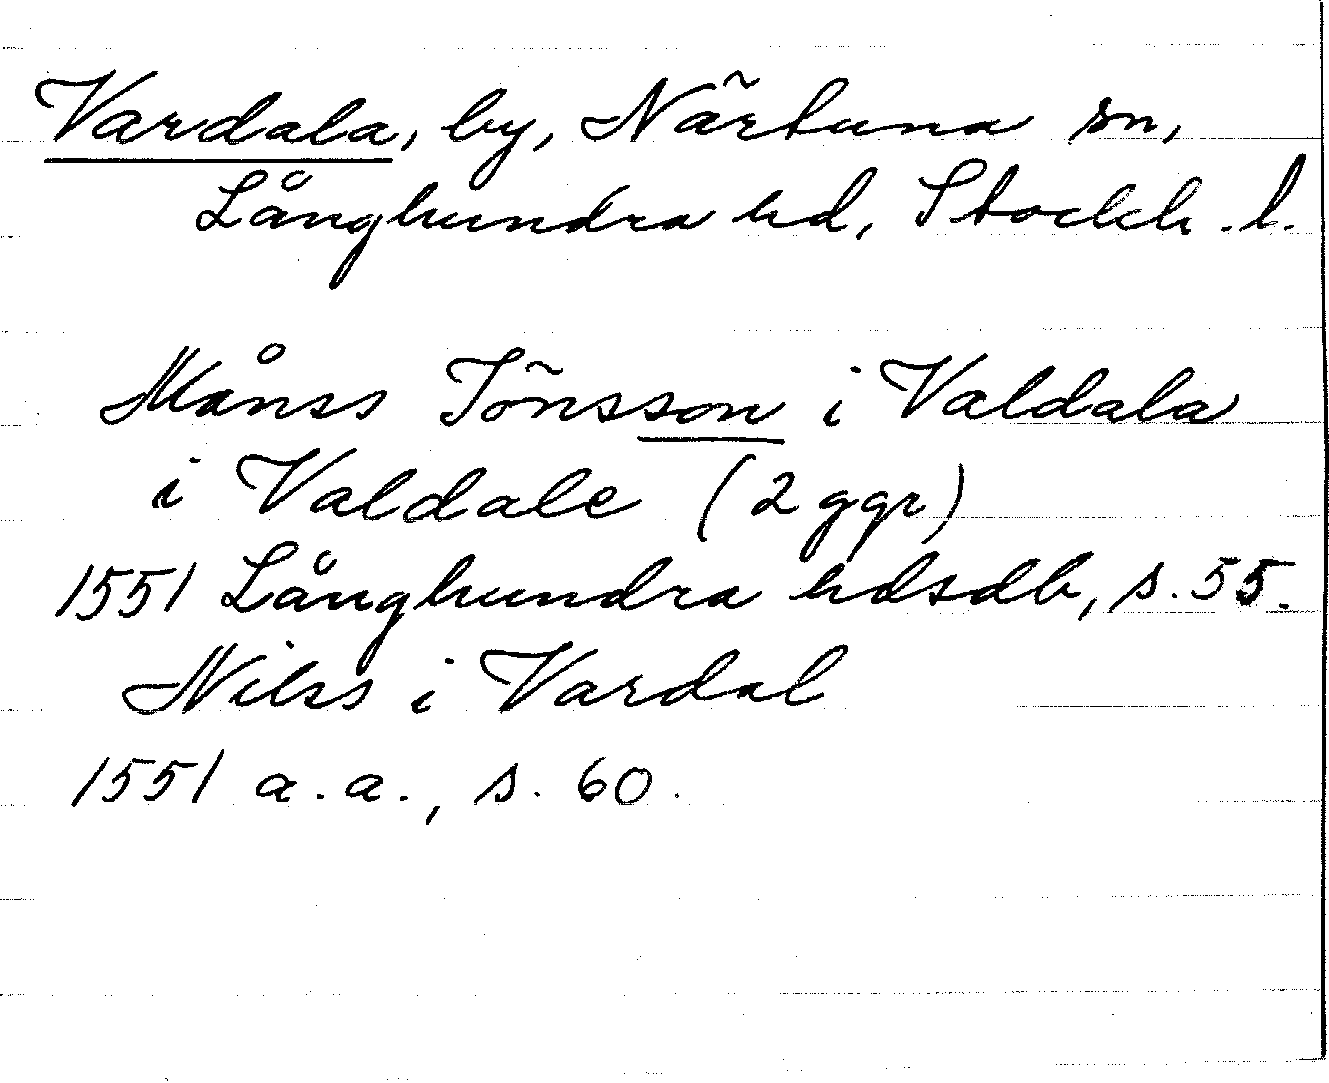 Vardala, by, Närtuna sn,
Långhundra hd, Stockh. l.
Månss Jönsson i Valdala
i Valdale (2 ggr)
1551 Långhundra hdsdb, s. 55.
Nilss i Vardal
1551 a. a., s. 60.